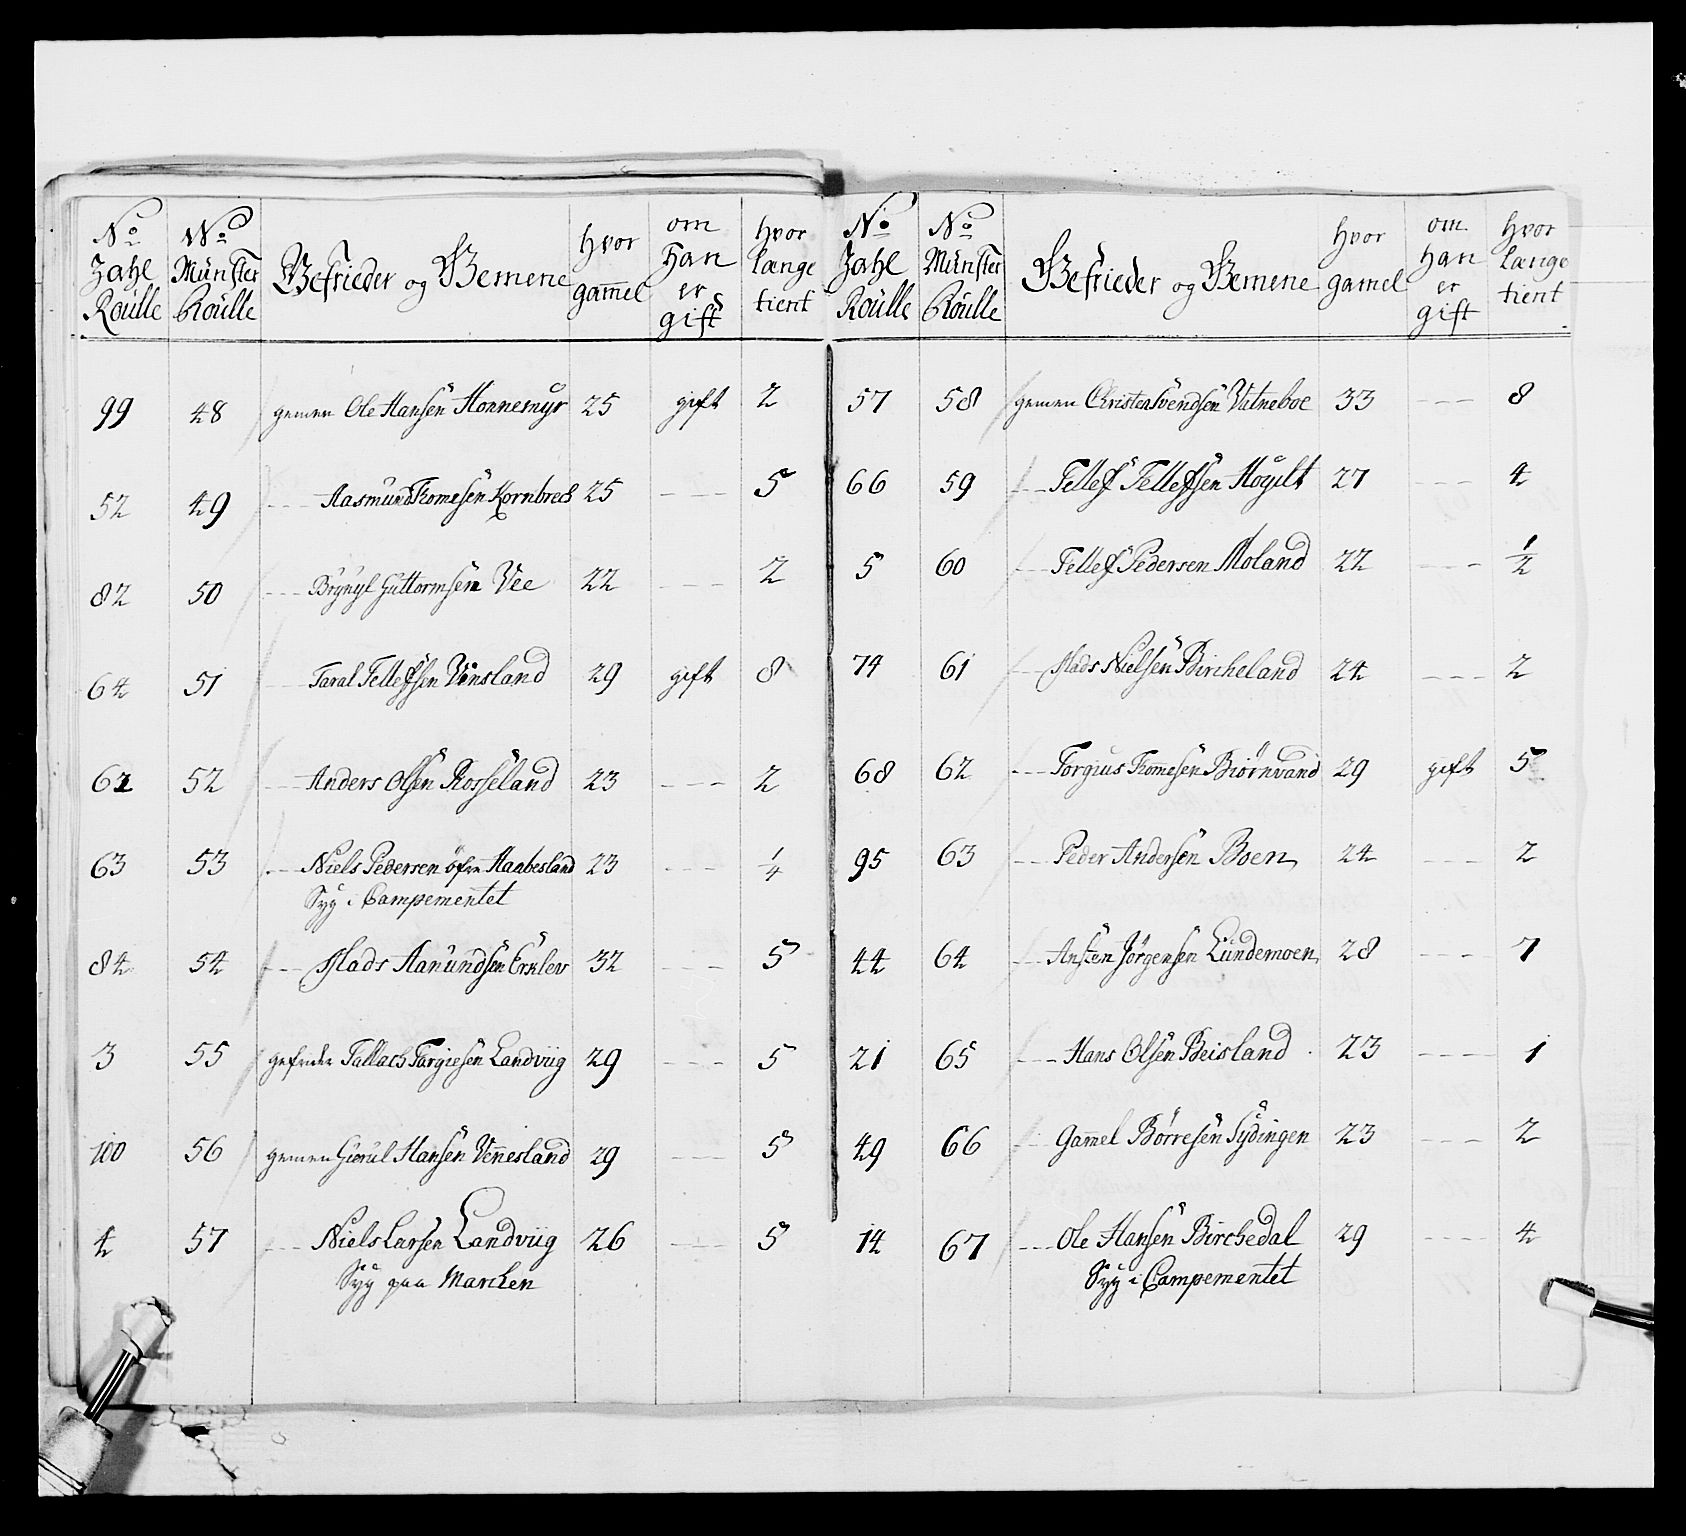 No Zahl Roulle | No Münster Roulle | Gefrieder og Gemene | hvor gam̅el | om Han er gift | hvor længe tient
99 | 48 | gemen Ole Hansen Honnemyr | 25 | gift | 2
52 | 49 | --- Aasmund Tomesen Kornbrech | 25 | --- | 5
82 | 50 | --- Brynyl Guttormsen Vee | 22 | --- | 2
64 | 51 | --- Taral Tellefsen Vinsland | 29 | gift | 8
62 | 52 | --- Anders Olsen Rosseland | 23 | --- | 2
63 | 53 | --- Niels Pedersen öfre Haabesland | 23 | --- | 1/4
Syg i Campementet
84 | 54 | --- Mads Aanundsen Erklev | 32 | --- | 5
3 | 55 | gefrider Tallach Torgiesen Landviig | 29 | --- | 5
100 | 56 | gemen Gierul Hansen Ven̅esland | 29 | --- | 5
4 | 57 | --- Niels Larsen Landviig | 26 | --- | 5
Syg paa Marchen
No Zahl Roulle | No Münster Roulle | Gefrieder og Gemene | hvor gamel | om han er gift | hvor længe tient
57 | 58 | gemen Christen Svendsen Vatneboe | 33 | --- | 8
66 | 59 | --- Tellef Tellefsen Høgilt | 27 | --- | 4
5 | 60 | --- Tellef Pedersen Moland | 22 | --- | 1/2
74 | 61 | --- Mads Nielsen Bircheland | 24 | --- | 2
68 | 62 | --- Torgius Tom̅esen Biørnvand | 29 | gift | 5
95 | 63 | --- Peder Andersen Boen | 24 | --- | 2
44 | 64 | --- Ansten Jørgensen Lundemoen | 28 | --- | 7
21 | 65 | --- Hans Olsen Beisland | 23 | --- | 1
49 | 66 | --- Gam̅el Børresen Sydingen | 23 | --- | 2
14 | 67 | --- Ole Hansen Birchedal | 29 | --- | 4
Syg i Campementet